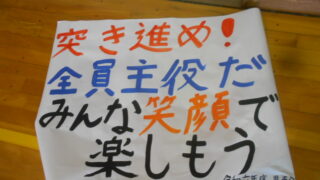 突き進め!
全員主役だ
みんな笑顔で
楽しもう